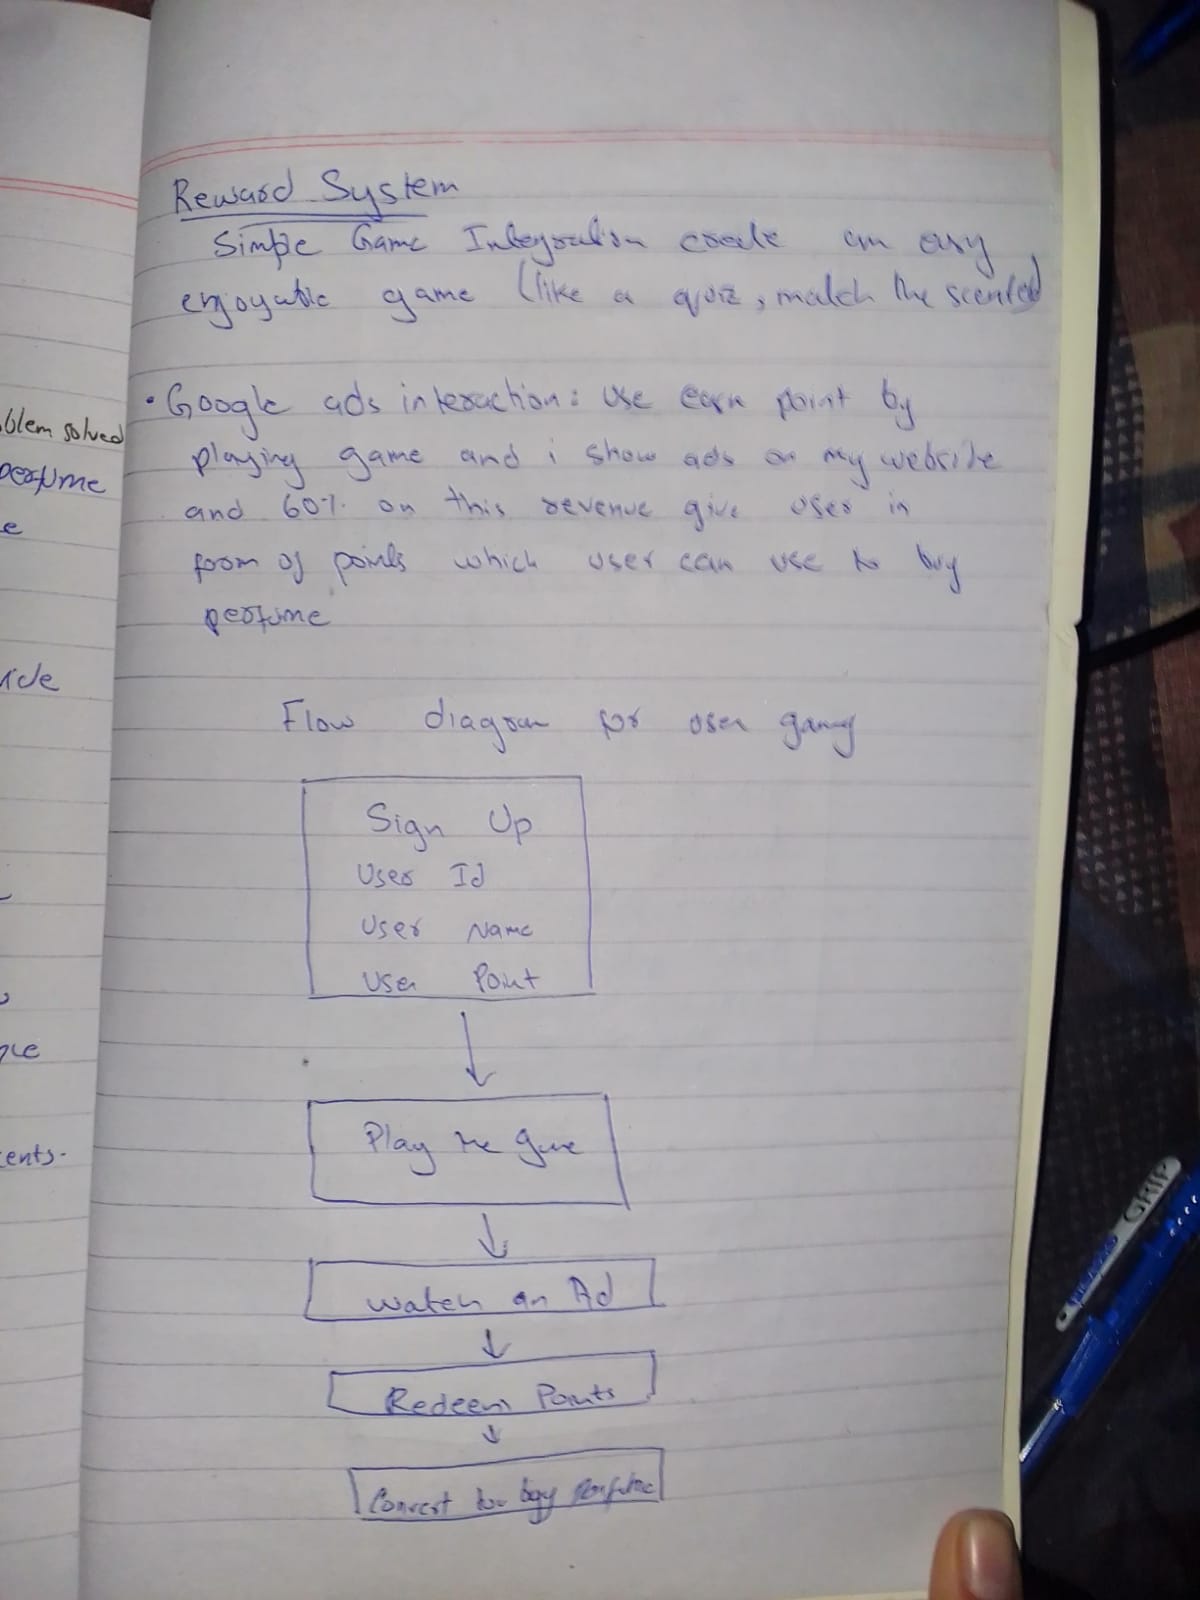 Reward System
Simple Game Integration create an easy
enjoyable game (like a quiz, match the scented)
• Google ads interaction: use earn point by
playing game and i show ads on my website
and 60% on this revenue give user in
form of points which user can use to buy
perfume
Flow diagram for user gaming
Sign Up
User Id
User Name
User Point
Play the game
Watch an Ad
Redeem Points
Convert to buy perfume
blem solved
perfume
e
ple
cents.
GRIP